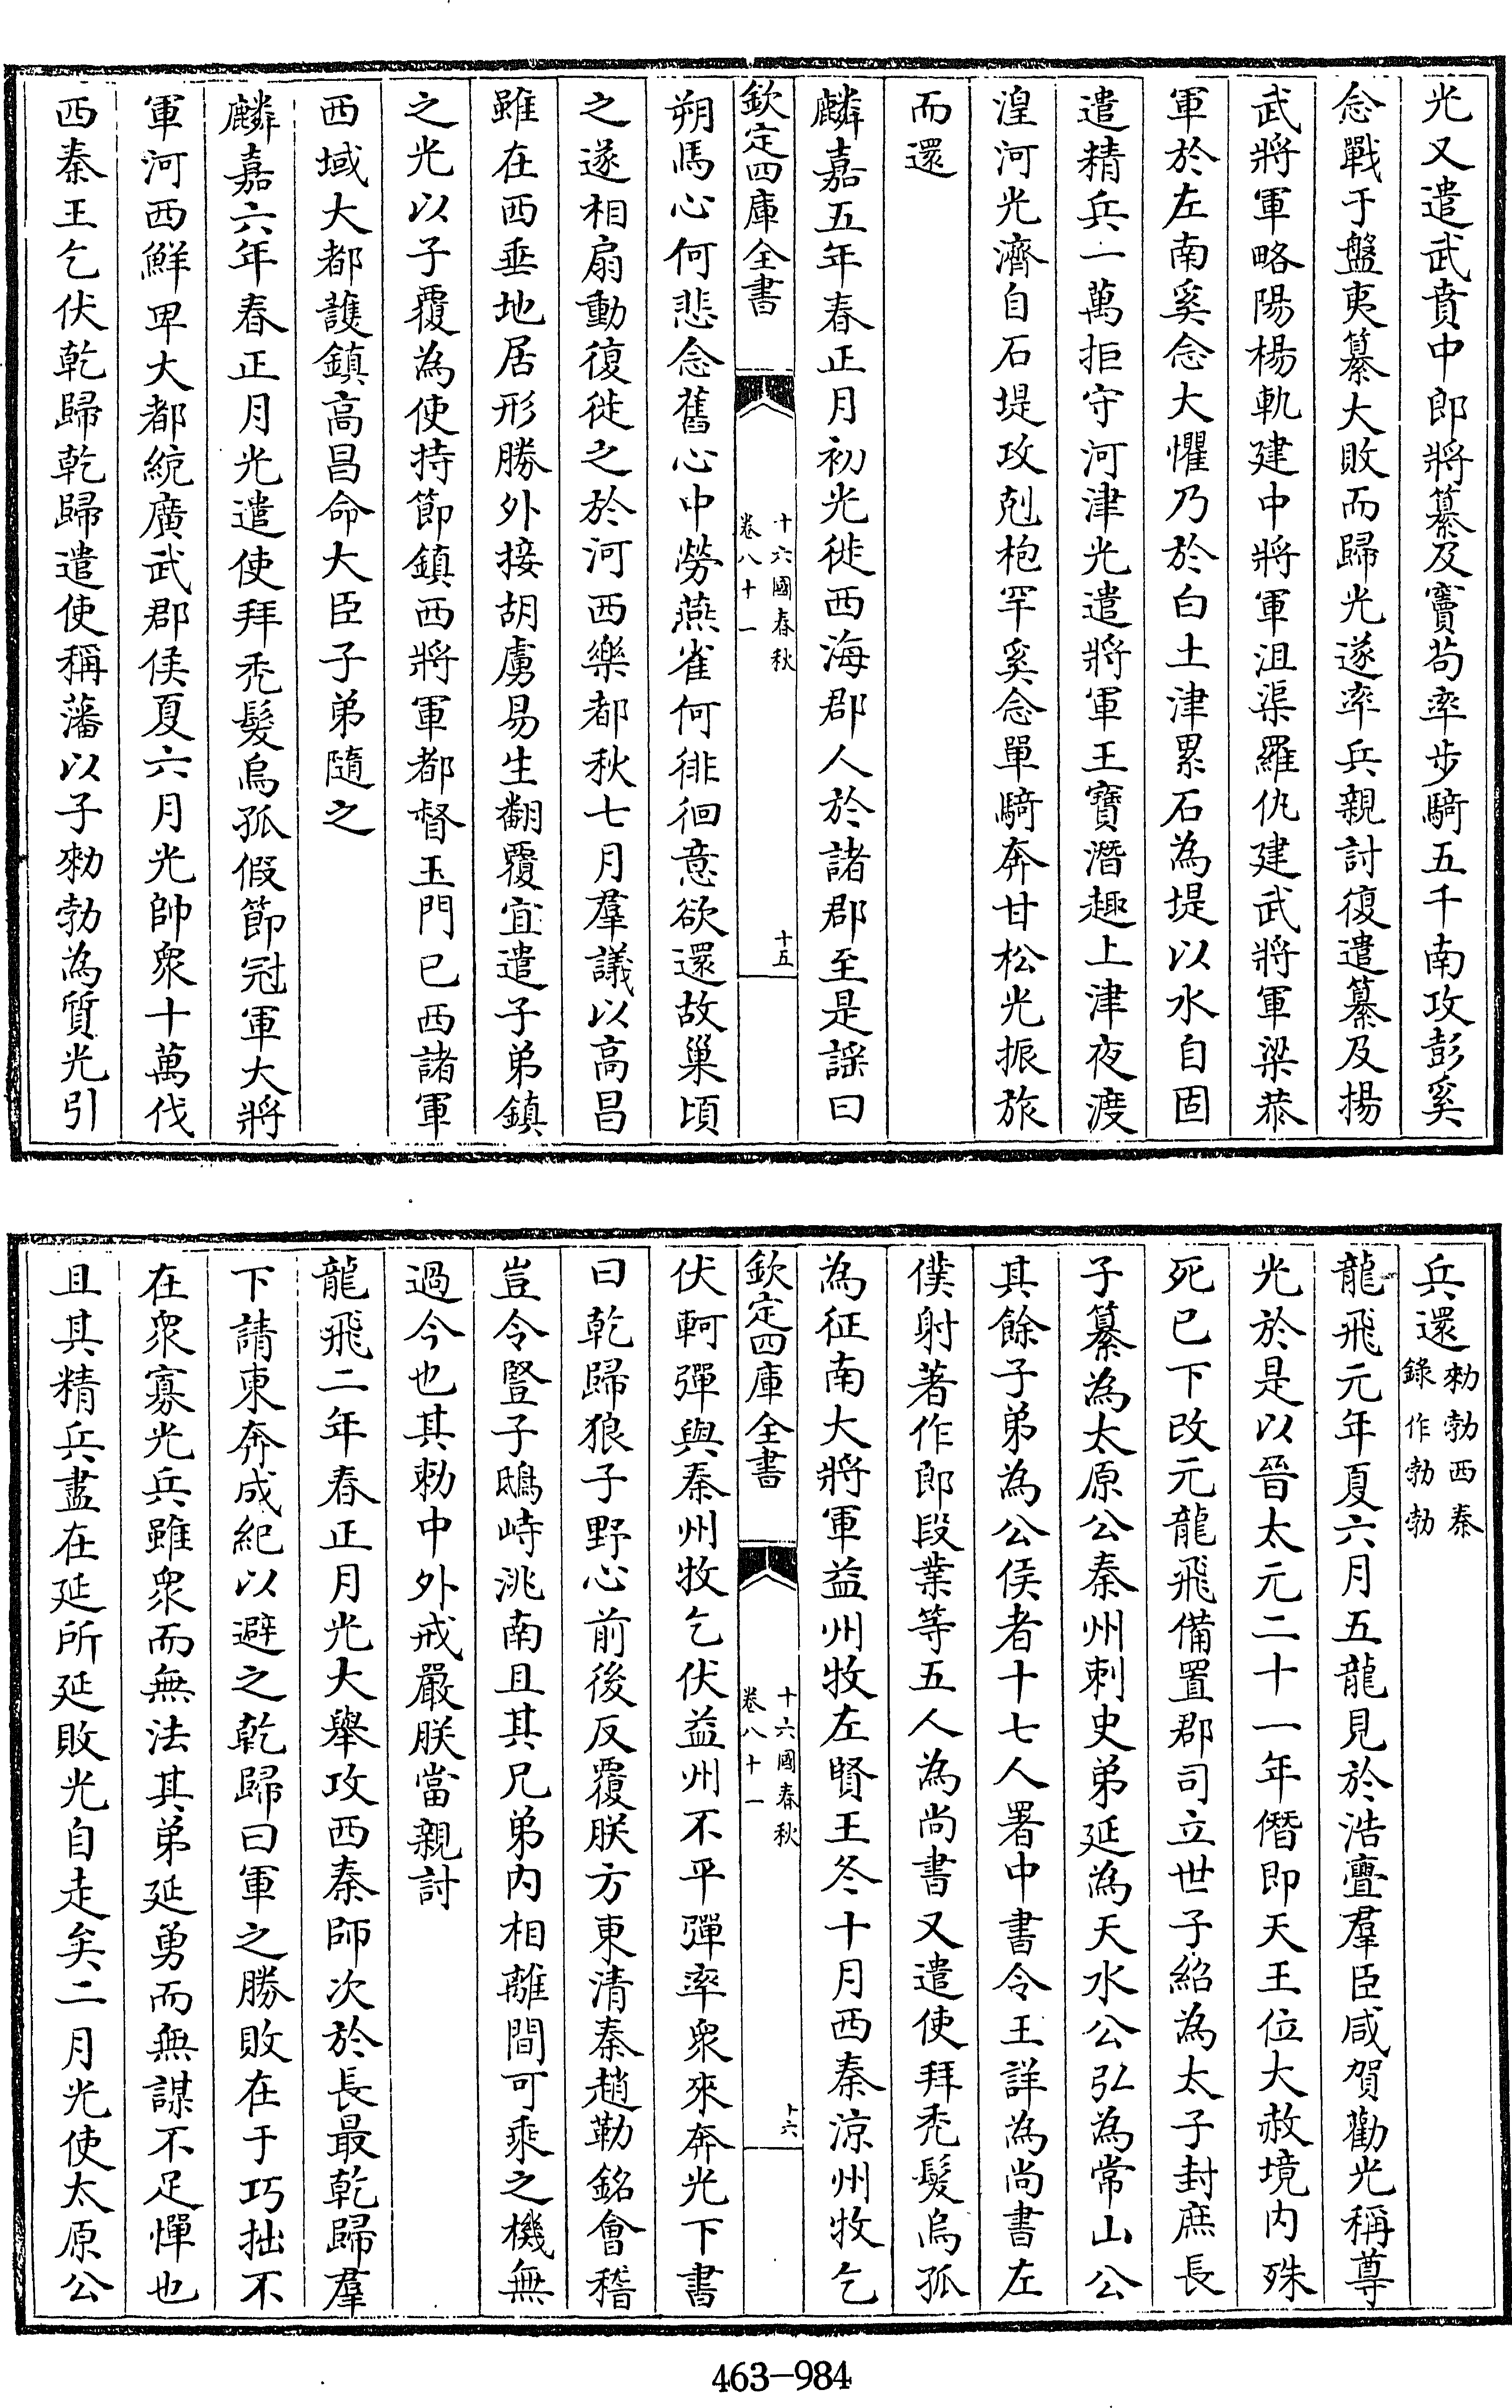 光又遣武賁中郎將纂及竇苟率步騎五千南攻彭奚
念戰于盤夷纂大敗而歸光遂率兵親討復遣纂及揚
武將軍略陽楊軌建中將軍沮渠羅仇建武將軍梁恭
軍於左南奚念大懼乃於白土津累石為堤以水自固
遣精兵一萬拒守河津光遣將軍王寶潛趣上津夜渡
湟河光濟自石堤攻剋枹罕奚念單騎奔甘松光振旅
而還
麟嘉五年春正月初光徙西海郡人於諸郡至是謡曰
欽定四庫全書
十六國春秋
卷八十一
十五
朔馬心何悲念舊心中勞燕雀何徘徊意欲還故巢頃
之遂相扇動復徙之於河西樂都秋七月羣議以高昌
雖在西垂地居形勝外接胡虜易生翻覆宜遣子弟鎮
之光以子覆為使持節鎮西將軍都督玉門已西諸軍
西域大都護鎮高昌命大臣子弟隨之
麟嘉六年春正月光遣使拜禿髮烏孤假節冠軍大將
軍河西鮮卑大都統廣武郡侯夏六月光帥衆十萬伐
西秦王乞伏乾歸乾歸遣使稱藩以子勑勃為質光引
兵還
勑勃西秦
錄作勃勃
龍飛元年夏六月五龍見於浩亹羣臣咸賀勸光稱尊
光於是以晉太元二十一年僭即天王位大赦境内殊
死已下改元龍飛備置郡司立世子紹為太子封庶長
子纂為太原公秦州刺史弟延為天水公弘為常山公
其餘子弟為公侯者十七人署中書令王詳為尚書左
僕射著作郎段業等五人為尚書又遣使拜禿髮烏孤
為征南大將軍益州牧左賢王冬十月西秦涼州牧乞
欽定四庫全書
十六國春秋
卷八十一
十六
伏軻彈與秦州牧乞伏益州不平彈率衆來奔光下書
曰乾歸狼子野心前後反覆朕方東清秦趙勒銘會稽
豈令豎子鴟峙洮南且其兄弟内相離間可乘之機無
過今也其勑中外戒嚴朕當親討
龍飛二年春正月光大舉攻西秦師次於長最乾歸羣
下請東奔成紀以避之乾歸曰軍之勝敗在于巧拙不
在衆寡光兵雖衆而無法其弟延勇而無謀不足憚也
且其精兵盡在延所延敗光自走矣二月光使太原公
463-984